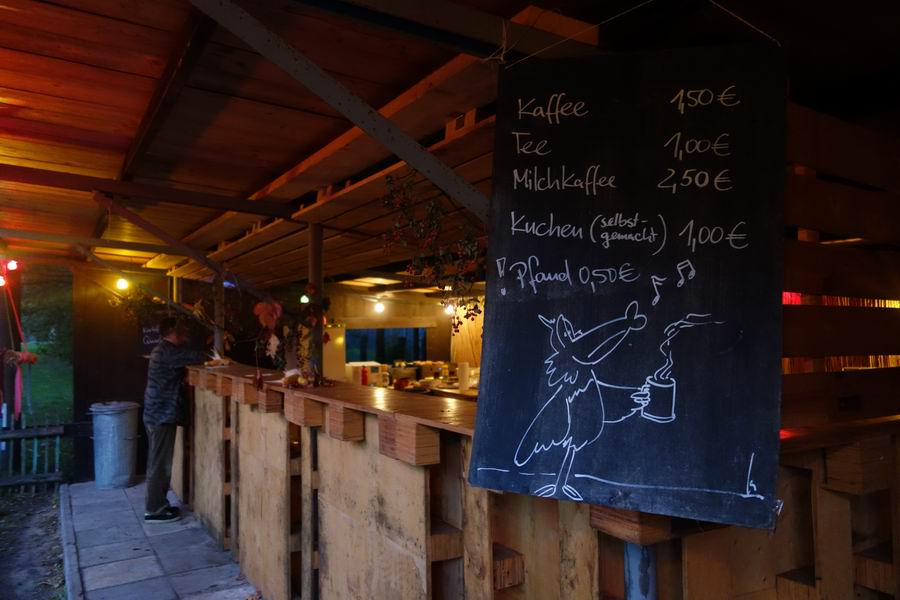 Kaffee 1,50€
Tee 1,00€
Milchkaffee 2,50€
Kuchen (selbst-gemacht) 1,00€
! Pfand 0,50€